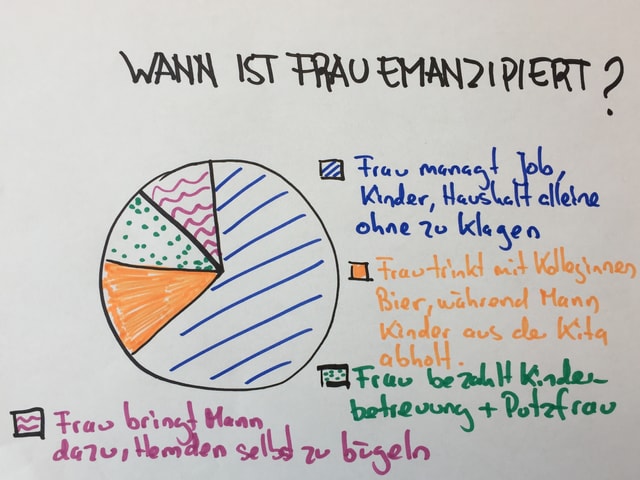 WANN IST FRAU EMANZIPIERT?
Frau managt Job,
Kinder, Haushalt alleine
ohne zu klagen
Frau trinkt mit Kolleginnen
Bier, während Mann
Kinder aus de Kita
abholt.
Frau bezahlt Kinder-
betreuung + Putzfrau
Frau bringt Mann
dazu, Hemden selbst zu bügeln